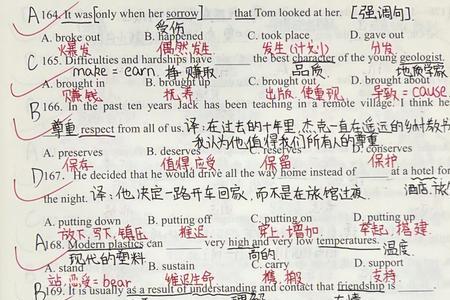 A 164. It was [only when her sorrow] ___ that Tom looked at her. [强调句]
受伤
A. broke out B. happened C. took place D. gave out
爆发 偶然发生 发生(计划) 分发
C 165. Difficulties and hardships have ___ the best character of the young geologist.
make = earn 挣 赚取 品质 地质学家
A. brought in B. brought up C. brought out D. brought about
赚钱 抚养 出版 使重现 导致 = cause
B 166. In the past ten years Jack has been teaching in a remote village. I think he
尊重 respect from all of us. 译: 在过去的十年里, 杰克一直在遥远的乡村教书
我认为他值得我们所有人的尊重
A. preserves B. deserves C. reserves D. conserves
保存 值得, 应受 保留 保护
D 167. He decided that he would drive all the way home instead of ___ at a hotel for
the night. 译: 他决定一路开车回家, 而不是在旅馆过夜. 酒店, 旅
A. putting down B. putting off C. putting on D. putting up
放下, 写下, 镇压 推迟 穿上, 增加 举起, 搭建
A 168. Modern plastics can ___ very high and very low temperatures.
现代的塑料 高的 温度
A. stand B. sustain C. carry D. support
站, 忍受 = bear 维持生命 携, 搬 支持
B 169. It is usually as a result of understanding and contact that friendship is